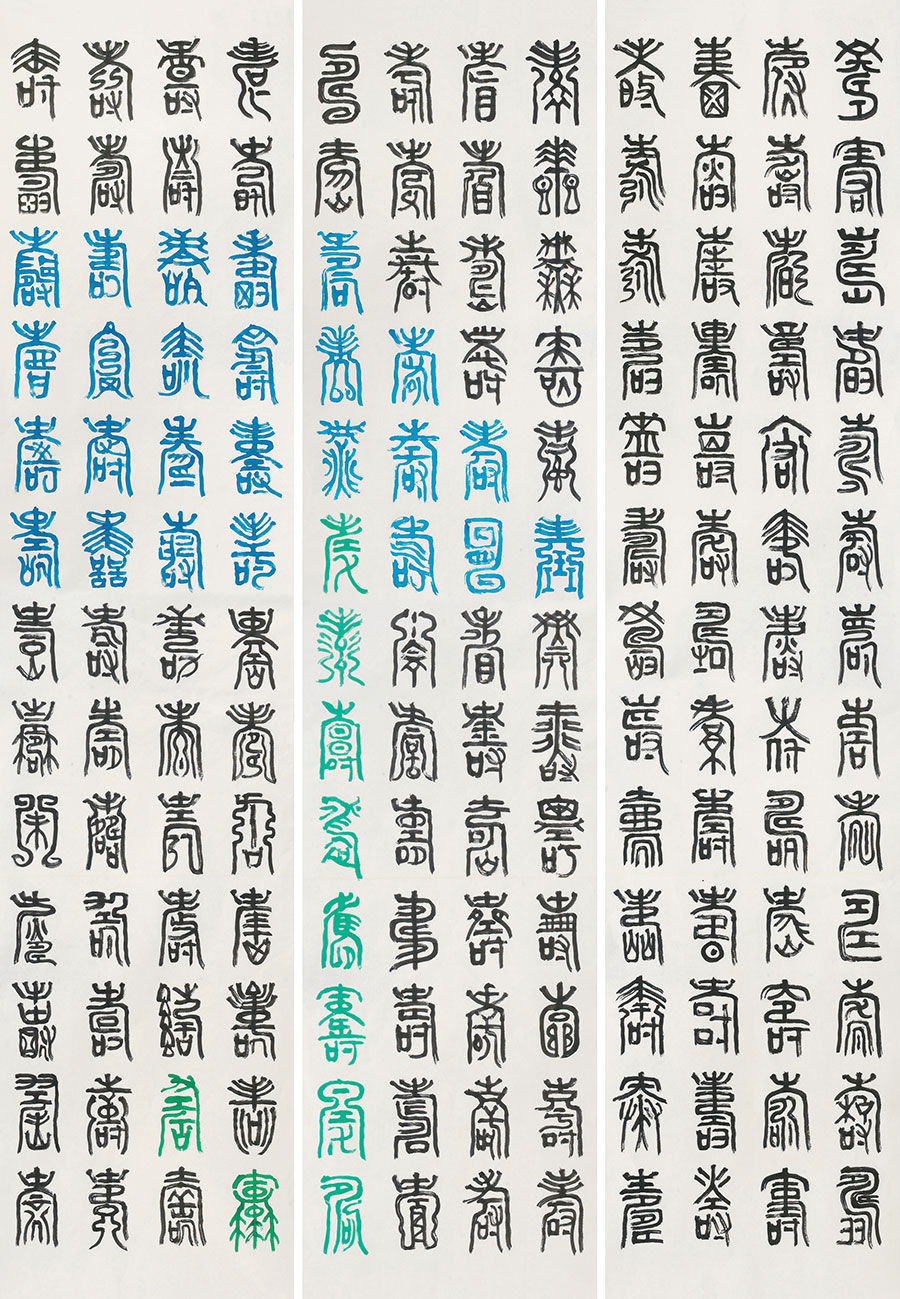 壽壽壽壽壽壽壽壽壽壽壽壽壽
壽壽壽壽壽壽壽壽壽壽壽壽壽
壽壽壽壽壽壽壽壽壽壽壽壽壽
壽壽壽壽壽壽壽壽壽壽壽壽壽
壽壽壽壽壽壽壽壽壽壽壽壽壽
壽壽壽壽壽壽壽壽壽壽壽壽壽
壽壽壽壽壽壽壽壽壽壽壽壽壽
壽壽壽壽壽壽壽壽壽壽壽壽壽
壽壽壽壽壽壽壽壽壽壽壽壽壽
壽壽壽壽壽壽壽壽壽壽壽壽壽
壽壽壽壽壽壽壽壽壽壽壽壽壽
壽壽壽壽壽壽壽壽壽壽壽壽壽